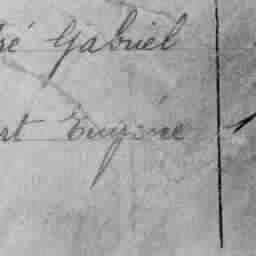 ré Gabriel
rt Eugène